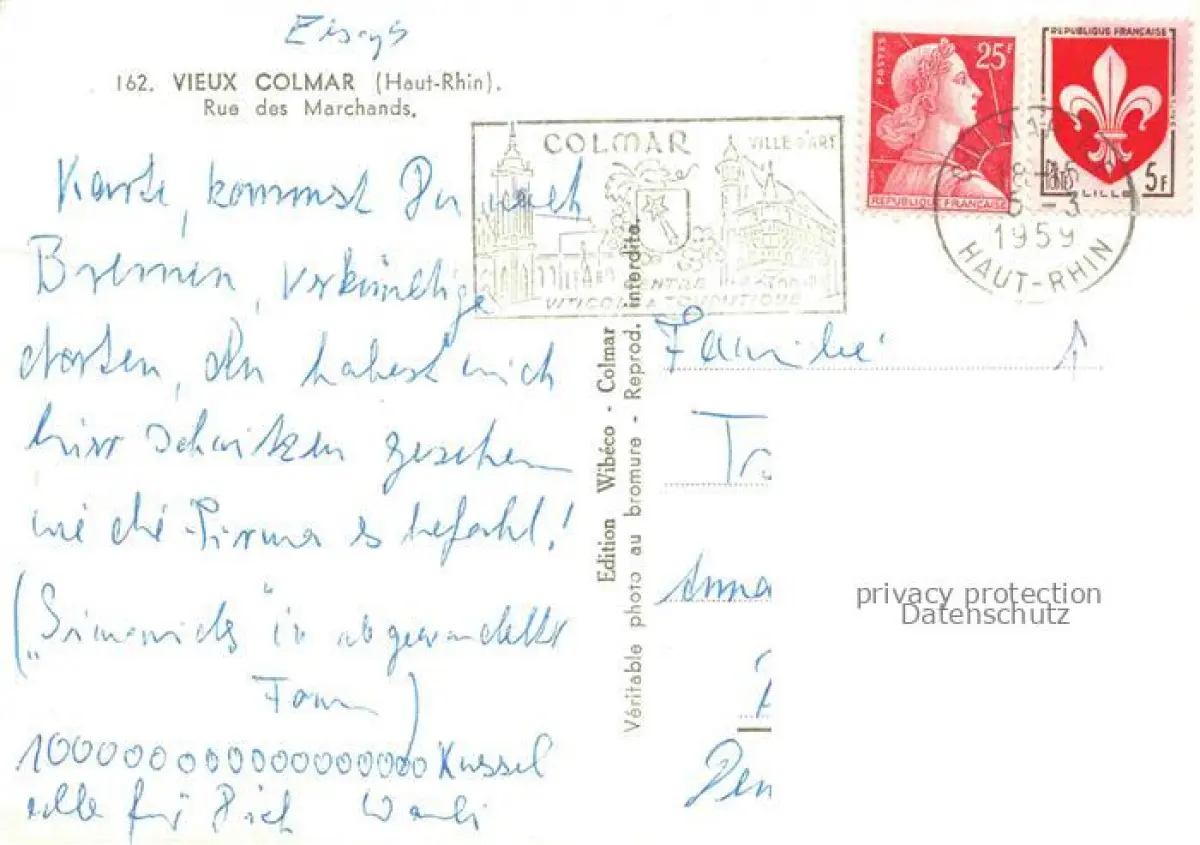 162. VIEUX COLMAR (Haut-Rhin).
Rue des Marchands.
Karte, kommst Du nach
Bremen, verkündige
dorten, Du habest mich
hier schwitzen gesehen
wie die Firma es befahl!
("Simonides" in abgewandelter
Form)
Küssel
alle für Dich
COLMAR VILLE D'ART
CENTRE
VITICOLE & TOURISTIQUE
POSTES
25F
REPUBLIQUE FRANÇAISE
REPUBLIQUE FRANÇAISE
POSTES 5F
LILLE
COLMAR
18
5-3
1959
HAUT-RHIN
Edition Wibéco - Colmar
Véritable photo au bromure - Reprod. interdite.
Familie
Tr
Anna
privacy protection
Datenschutz